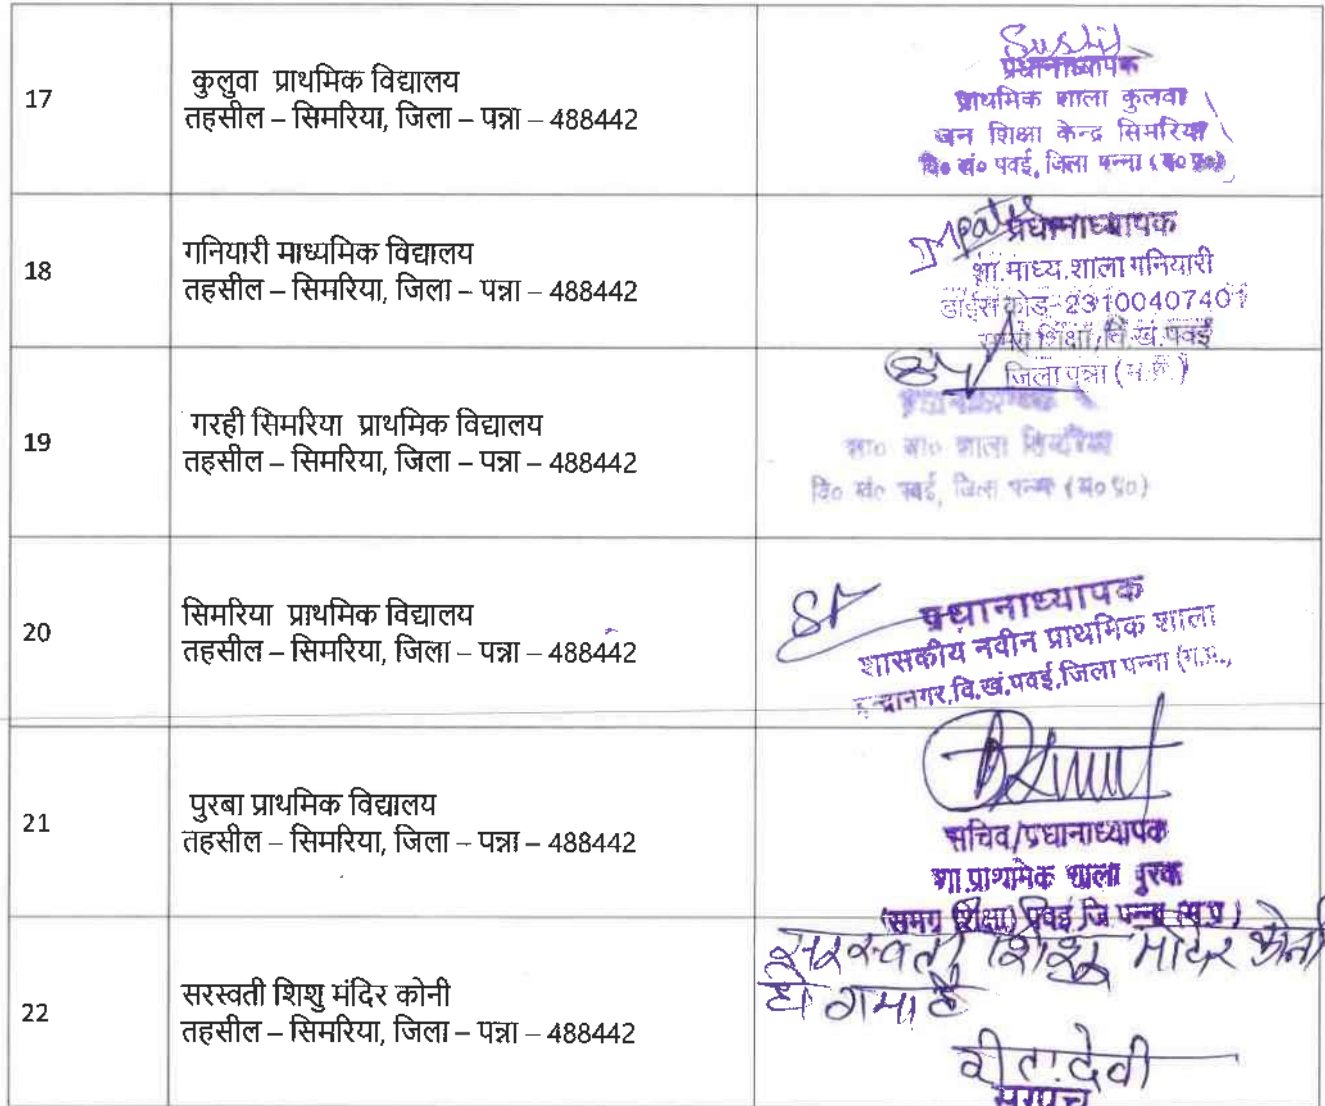 17
कुलुवा प्राथमिक विद्यालय
तहसील – सिमरिया, जिला – पन्ना – 488442
Sushil
प्रधानाध्यापक
प्राथमिक शाला कुलवा
जन शिक्षा केन्द्र सिमरिया
वि० सं० पवई, जिला पन्ना (म० प्र०)
18
गनियारी माध्यमिक विद्यालय
तहसील – सिमरिया, जिला – पन्ना – 488442
प्रधानाध्यापक
शा.माध्य.शाला गनियारी
डाईस कोड-23100407401
समग्र शिक्षा, वि.खं.पवई
जिला पन्ना (म.प्र.)
19
गरही सिमरिया प्राथमिक विद्यालय
तहसील – सिमरिया, जिला – पन्ना – 488442
शाला सिमरिया
वि० खं० पवई, जिला पन्ना (म० प्र०)
20
सिमरिया प्राथमिक विद्यालय
तहसील – सिमरिया, जिला – पन्ना – 488442
प्रधानाध्यापक
शासकीय नवीन प्राथमिक शाला
इन्द्रानगर,वि.खं.पवई,जिला पन्ना (म.प्र.)
21
पुरबा प्राथमिक विद्यालय
तहसील – सिमरिया, जिला – पन्ना – 488442
सचिव/प्रधानाध्यापक
शा.प्राथमिक शाला
(समग्र शिक्षा) पवई जि पन्ना (म.प्र.)
22
सरस्वती शिशु मंदिर कोनी
तहसील – सिमरिया, जिला – पन्ना – 488442
सरस्वती शिशु मंदिर कोनी
हो गया है
रीता देवी
सरपंच